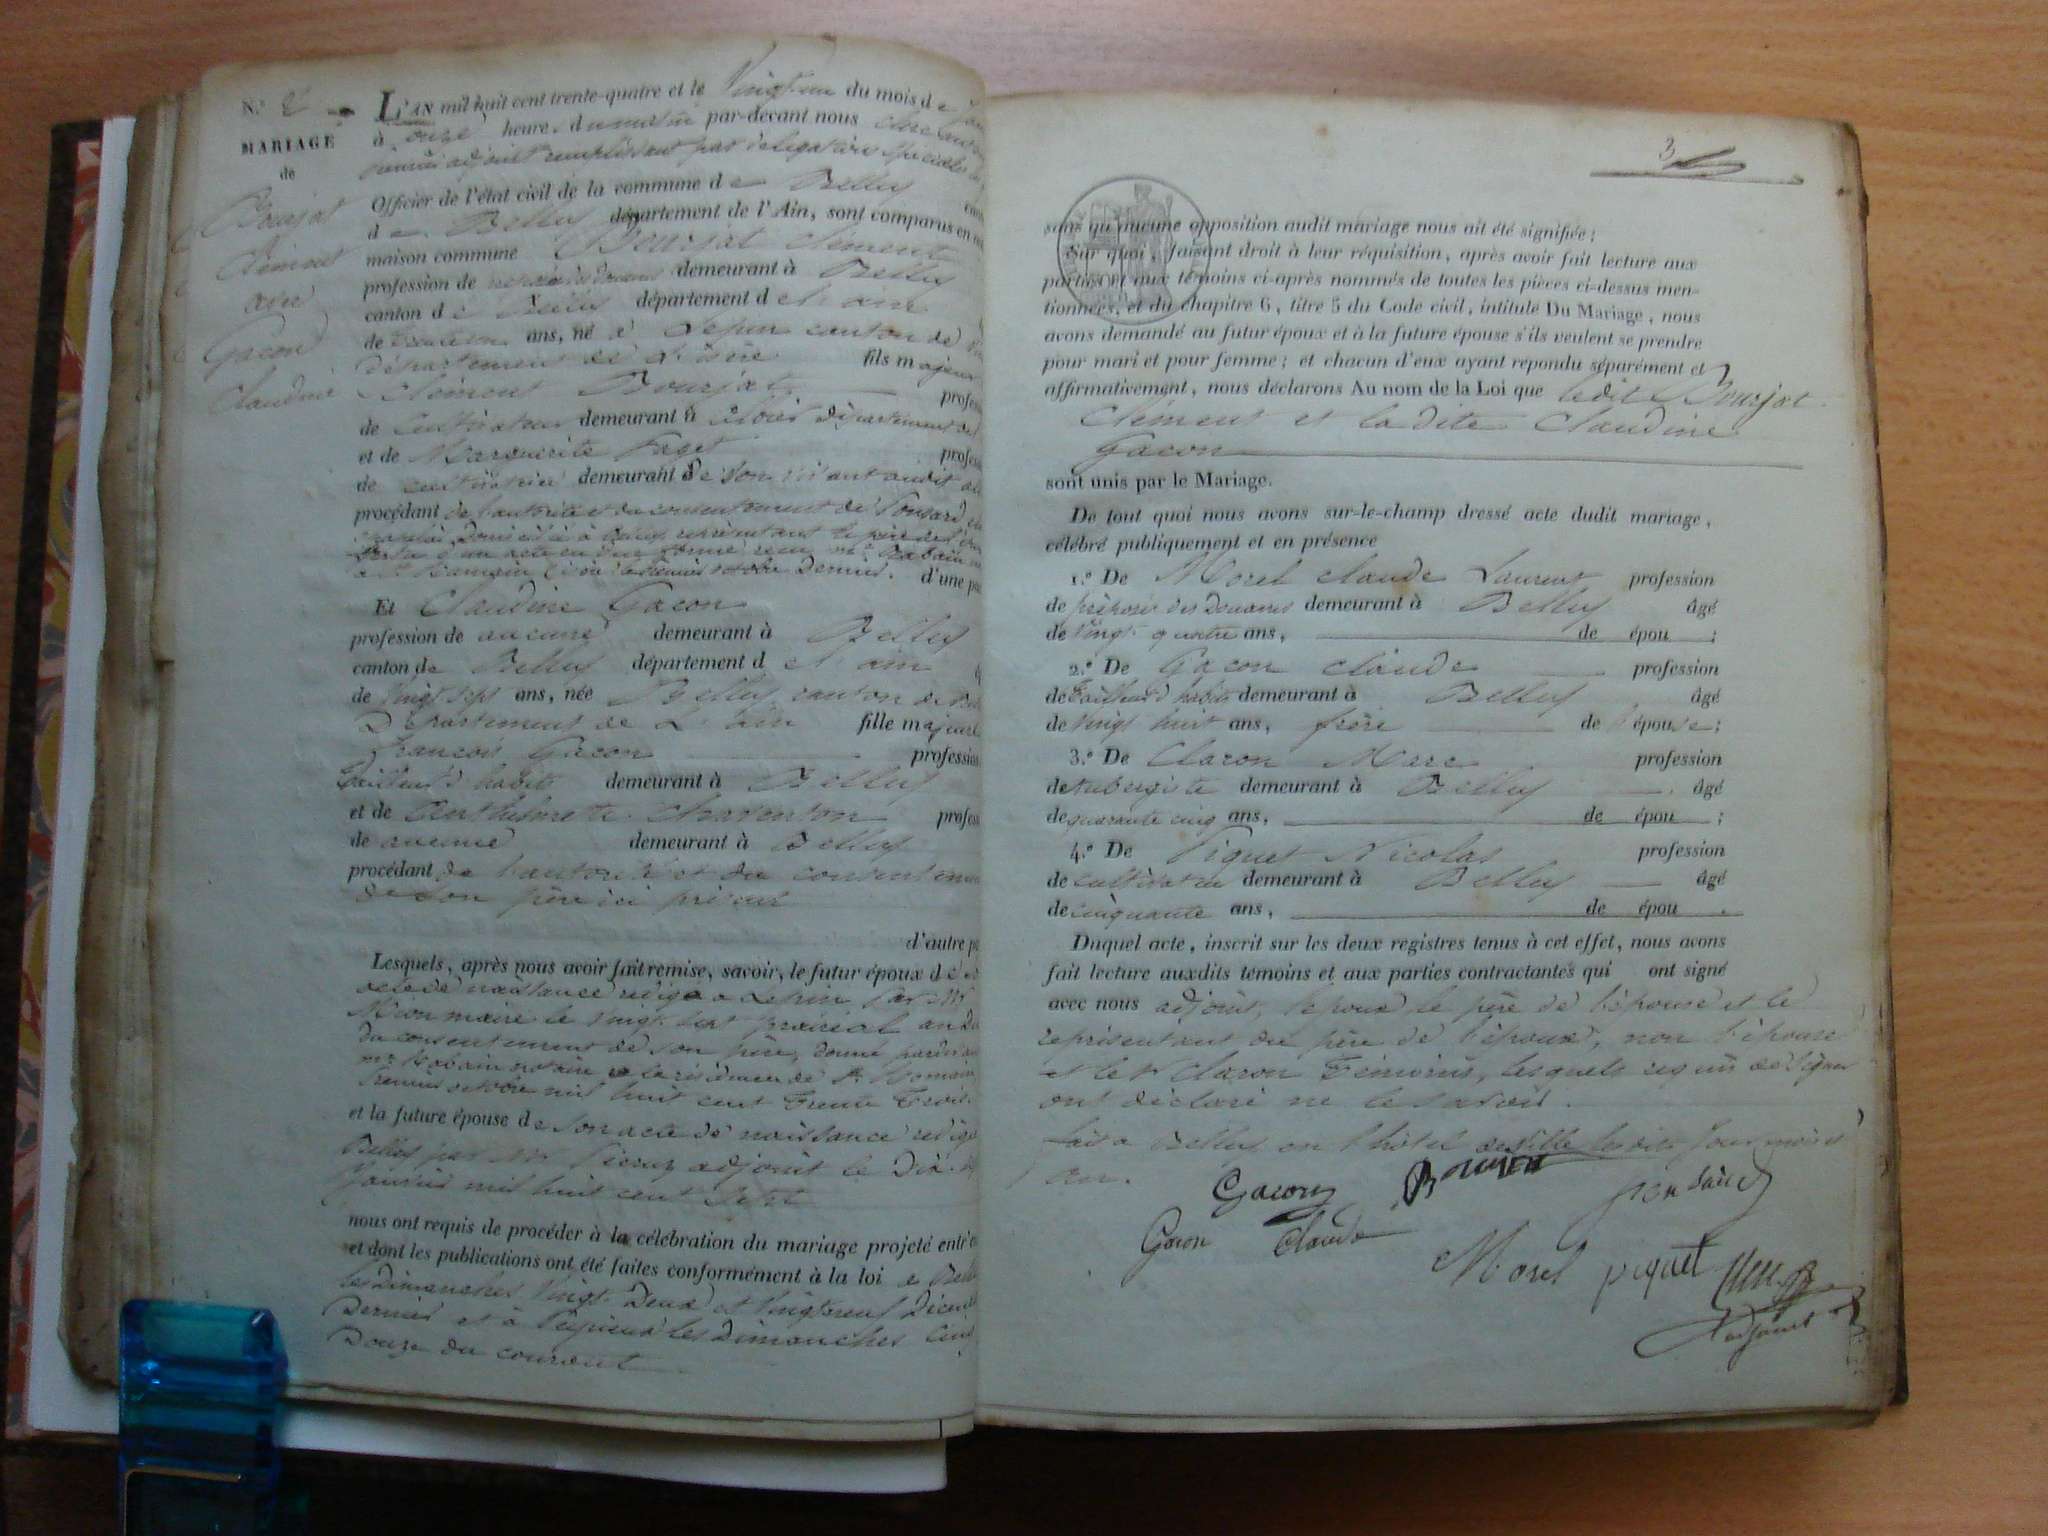 N.º 2
MARIAGE
de
Bourjat
Clément
avec
Gacon
Claudine
L'AN mil huit cent trente-quatre et le Vingt-un du mois de
à onze heures du matin par-devant nous
adjoint remplissant par délégation spéciale
Officier de l'état civil de la commune de Belley
de Belley département de l'Ain, sont comparus en
maison commune Bourjat Clément
profession de des Douanes demeurant à Belley
canton de département de l'ain
de ans, né à Lepin canton de
département de L'isère fils majeur
Clément Bourjat
de Cultivateur demeurant à département de
et de Marguerite Paget
de cultivatrice demeurant de son vivant audit
procédant de l'autorité et du consentement de Ponsard
domicilié à Belley représentant le père de
d'un acte en due forme reçu mr Rabain
à St Romain octobre dernier. d'une
Et Claudine Gacon
profession de aucune demeurant à Belley
canton de Belley département de l'ain
de Vingt sept ans, née Belley canton de
Département de L'ain fille majeure
François Gacon profession
Tailleur d'habits demeurant à Belley
et de Anthelmette Charenton
de aucune demeurant à Belley
procédant de l'autorité et du consentement
de son père ici présent
d'autre
Lesquels, après nous avoir fait remise, savoir, le futur époux de
acte de naissance rédigé à Lepin par Mr
Mion maire le Vingt sept prairial an
du consentement de son père, donné
mr Rabain notaire à la résidence de St Romain
octobre mil huit cent trente trois.
et la future épouse de son acte de naissance rédigé
Belley par Mr adjoint le Dix
Janvier mil huit cent sept
nous ont requis de procéder à la célébration du mariage projeté entr'
et dont les publications ont été faites conformément à la loi à
les Dimanches Vingt Deux et Vingt neuf Décembre
Dernier et à les Dimanches Cinq
Douze du courant
3
sans qu'aucune opposition audit mariage nous ait été signifiée;
Sur quoi, faisant droit à leur réquisition, après avoir fait lecture aux
parties et aux témoins ci-après nommés de toutes les pièces ci-dessus men-
tionnées, et du chapitre 6, titre 5 du Code civil, intitulé Du Mariage, nous
avons demandé au futur époux et à la future épouse s'ils veulent se prendre
pour mari et pour femme; et chacun d'eux ayant répondu séparément et
affirmativement, nous déclarons Au nom de la Loi que ledit Bourjat
Clément et ladite Claudine
Gacon
sont unis par le Mariage.
De tout quoi nous avons sur-le-champ dressé acte dudit mariage,
célébré publiquement et en présence
1.º De Morel Claude Laurent profession
de préposé des Douanes demeurant à Belley âgé
de Vingt quatre ans, de épou ;
2.º De Gacon Claude profession
de tailleur d'habits demeurant à Belley âgé
de Vingt huit ans, frère de l'épouse;
3.º De Claron Marc profession
de aubergiste demeurant à Belley âgé
de quarante cinq ans, de épou ;
4.º De Piquet Nicolas profession
de cultivateur demeurant à Belley âgé
de cinquante ans, de épou .
Duquel acte, inscrit sur les deux registres tenus à cet effet, nous avons
fait lecture auxdits témoins et aux parties contractantes qui ont signé
avec nous adjoint, l'époux, le père de l'épouse et le
représentant du père de l'époux, non l'épouse
et le sr Claron témoins, lesquels requis de signer
ont déclaré ne le savoir.
fait à Belley en l'hôtel de Ville lesdits jour mois et
an.
Gacon Bourjat ponsard
Gacon Claude
Morel piquet
adjoint